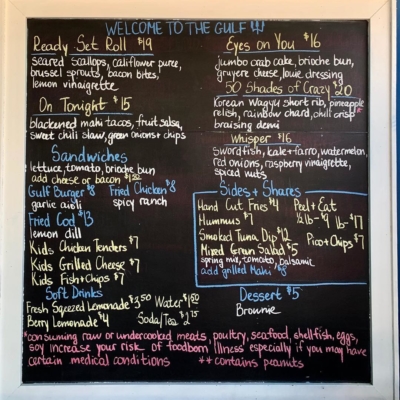 WELCOME TO THE GULF
Ready Set Roll $19
seared scallops, califlower puree,
brussel sprouts, bacon bites,
lemon vinaigrette
On Tonight $15
blackened mahi tacos, fruit salsa,
sweet chili slaw, green onions + chips
Sandwiches
lettuce, tomato, brioche bun
add cheese or bacon $1.50
Gulf Burger $8 Fried Chicken $8
garlic aioli spicy ranch
Fried Cod $13
lemon dill
Kids Chicken Tenders $7
Kids Grilled Cheese $7
Kids Fish + Chips $7
Soft Drinks
Fresh Sqeezed Lemonade $3.50 Water $1.50
Berry Lemonade $4 Soda/Tea $2.75
Eyes on You $16
jumbo crab cake, brioche bun,
gruyere cheese, louie dressing
50 Shades of Crazy $20
Korean Wagyu short rib, pineapple
relish, rainbow chard, chili crisp
braising demi
Whisper $16
swordfish, kale + farro, watermelon,
red onions, raspberry vinaigrette,
spiced nuts
Sides + Shares
Hand Cut Fries $4 Peel + Eat
Hummus $7 1/2 lb - $9 lb - $17
Smoked Tuna Dip $12
Mixed Green Salad $5 Pico + Chips $7
spring mix, tomato, balsamic
add grilled Mahi $8
Dessert $5
Brownie
*consuming raw or undercooked meats, poultry, seafood, shellfish, eggs,
soy increase your risk of foodborn illness especially if you may have
certain medical conditions **contains peanuts